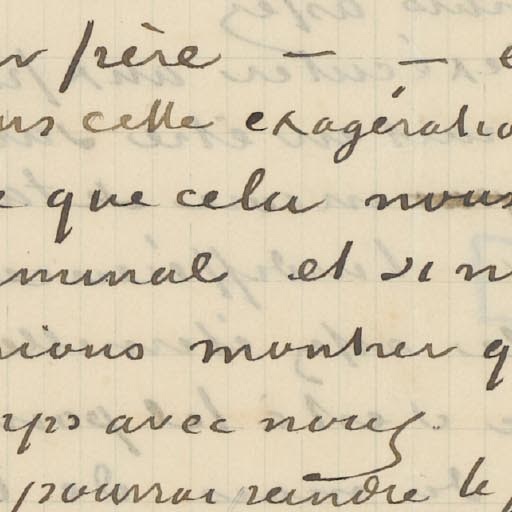 r père — — e
us cette exagératio
e que cela nous
minal et si n
rions montrer q
rps avec nous.
pourrai reindre le p